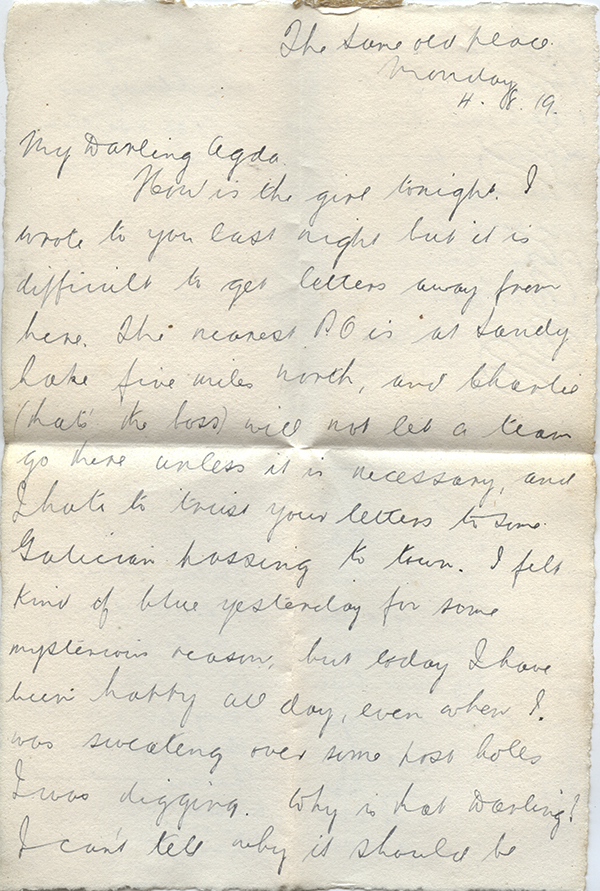 The same old place.
Monday
4. 8. 19.
My Darling Agda.
How is the girl tonight. I
wrote to you last night but it is
difficult to get letters away from
here. The nearest P.O is at Sandy
Lake five miles north, and Charlie
(that's the boss) will not let a team
go there unless it is necessary, and
I hate to trust your letters to some
Galician passing to town. I felt
kind of blue yesterday for some
mysterious reason, but today I have
been happy all day, even when I
was sweating over some post holes
I was digging. Why is that Darling?
I can't tell why it should be